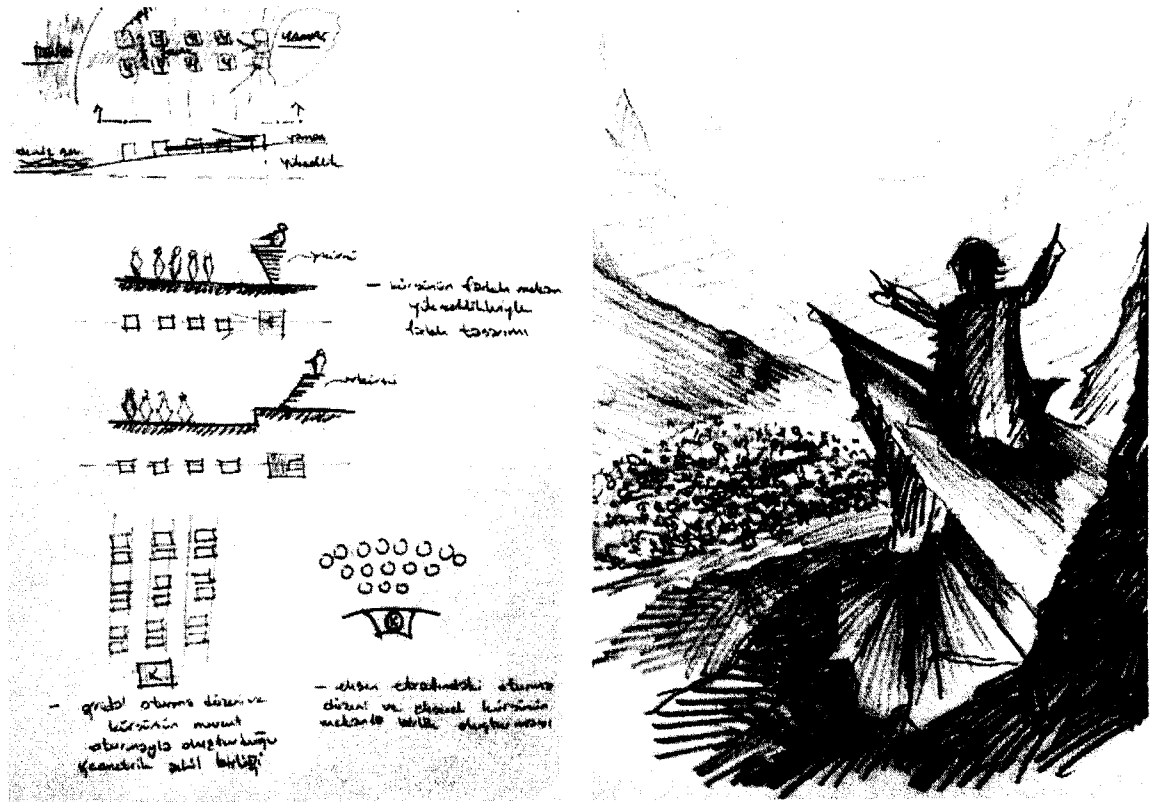 yamaç
deniz
yamaç
yükseklik
kürsü
– kürsünün farklı mekan
yükseklikleriyle
farklı tasarımı
kürsü
K
K
– gridal oturma düzeni ve
kürsünün mevcut
oturmayla oluşturduğu
geometrik şekil birliği
– eksen etrafındaki oturma
düzeni ve eksenel kürsünün
mekanla birlik oluşturması